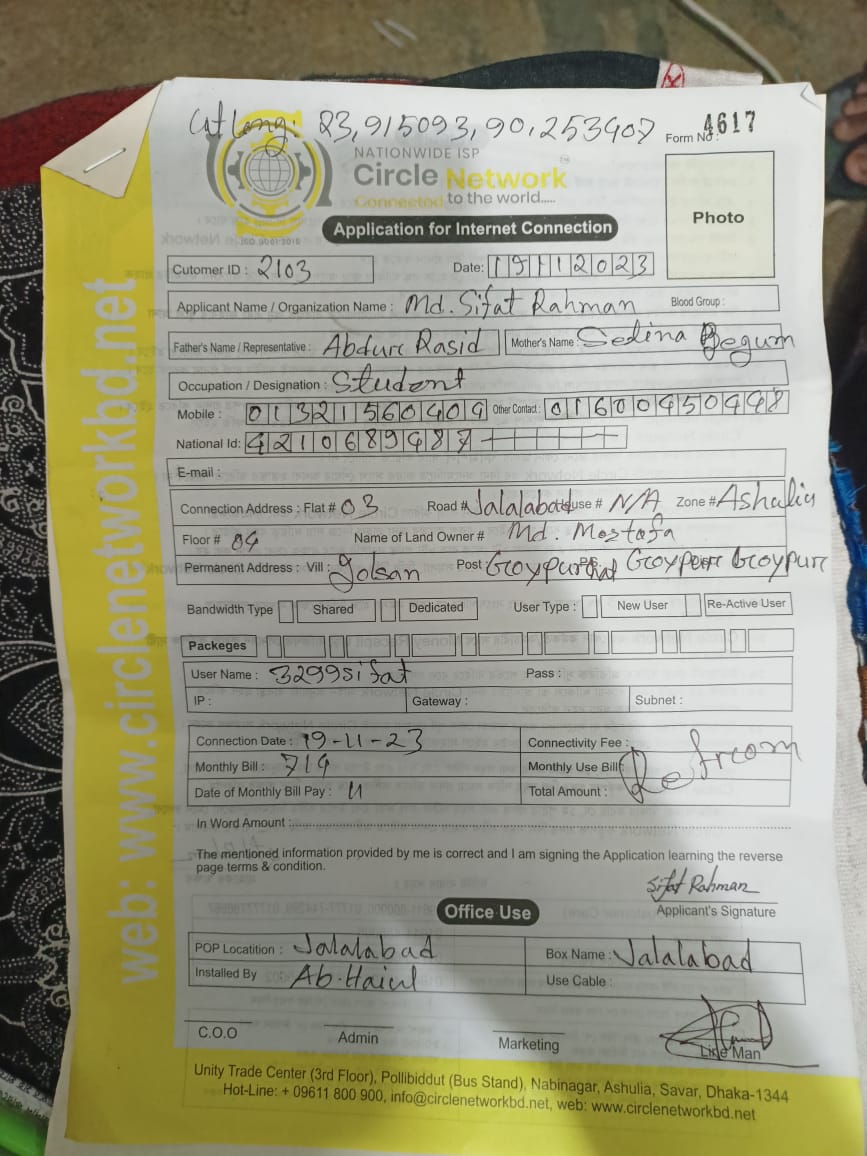 Lat Long: 23,915093,90,253407
Form No: 4617
NATIONWIDE ISP
Circle Network
Connected to the world.....
ISO 9001:2015
Photo
Application for Internet Connection
Cutomer ID : 2103 Date: 19112023
Applicant Name / Organization Name : Md. Sifat Rahman Blood Group :
Father's Name / Representative : Abdur Rasid Mother's Name : Selina Begum
Occupation / Designation : Student
Mobile : 01321560409 Other Contact : 01600450448
National Id: 4210689487
E-mail :
Connection Address : Flat # 03 Road # Jalalabad House # N/A Zone # Ashulia
Floor # 04 Name of Land Owner # Md. Mostafa
Permanent Address : Vill : Golsan Post
Bandwidth Type Shared Dedicated User Type : New User Re-Active User
Packeges
User Name : 3299sifat Pass :
IP : Gateway : Subnet :
Connection Date : 19-11-23 Connectivity Fee :
Monthly Bill : 714 Monthly Use Bill
Date of Monthly Bill Pay : Total Amount :
In Word Amount :
The mentioned information provided by me is correct and I am signing the Application learning the reverse
page terms & condition.
Sifat Rahman
Applicant's Signature
Office Use
POP Locatition : Jalalabad Box Name : Jalalabad
Installed By Use Cable :
C.O.O Admin Marketing Line Man
Unity Trade Center (3rd Floor), Pollibiddut (Bus Stand), Nabinagar, Ashulia, Savar, Dhaka-1344
Hot-Line: + 09611 800 900, info@circlenetworkbd.net, web: www.circlenetworkbd.net
web: www.circlenetworkbd.net